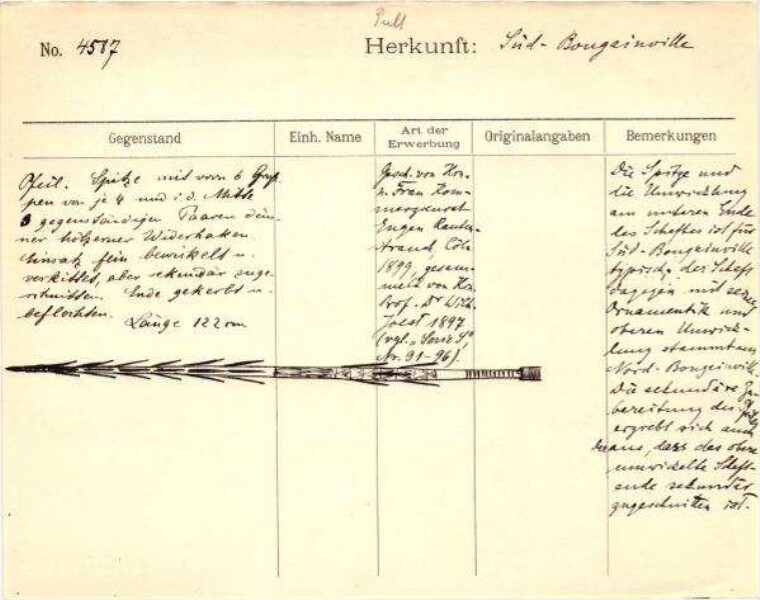 No. 4587
Herkunft: Süd-Bougainville
Gegenstand
Einh. Name
Art der
Erwerbung
Originalangaben
Bemerkungen
Pfeil. Spitze mit vorn 6 Grup-
pen von je 4 und i. d. Mitte
3 gegenständigen Paaren dün-
ner hölzerner Widerhaken.
Einsatz fein bewickelt u.
verkittet, aber sekundär zuge-
schnitten. Ende gekerbt u.
beflochten.
Länge 122 cm
Gesch. von Hrn.
u. Frau Kom-
merzienrat
Eugen Rauten-
strauch, Cöln
1899, gesam-
melt von Hrn.
Prof. Dr Wilh.
Joest 1897
(vgl. „Serie S",
Nr. 91-96).
Die Spitze und
die Umwicklung
am unteren Ende
des Schaftes ist für
Süd-Bougainville
typisch, der Schaft
dagegen mit seiner
Ornamentik und
oberen Umwick-
lung stammt aus
Nord-Bougainville.
Die sekundäre Zu-
bereitung des Pfeils
ergiebt sich auch
daraus, dass das obere
umwickelte Schaft-
ende sekundär
zugeschnitten ist.